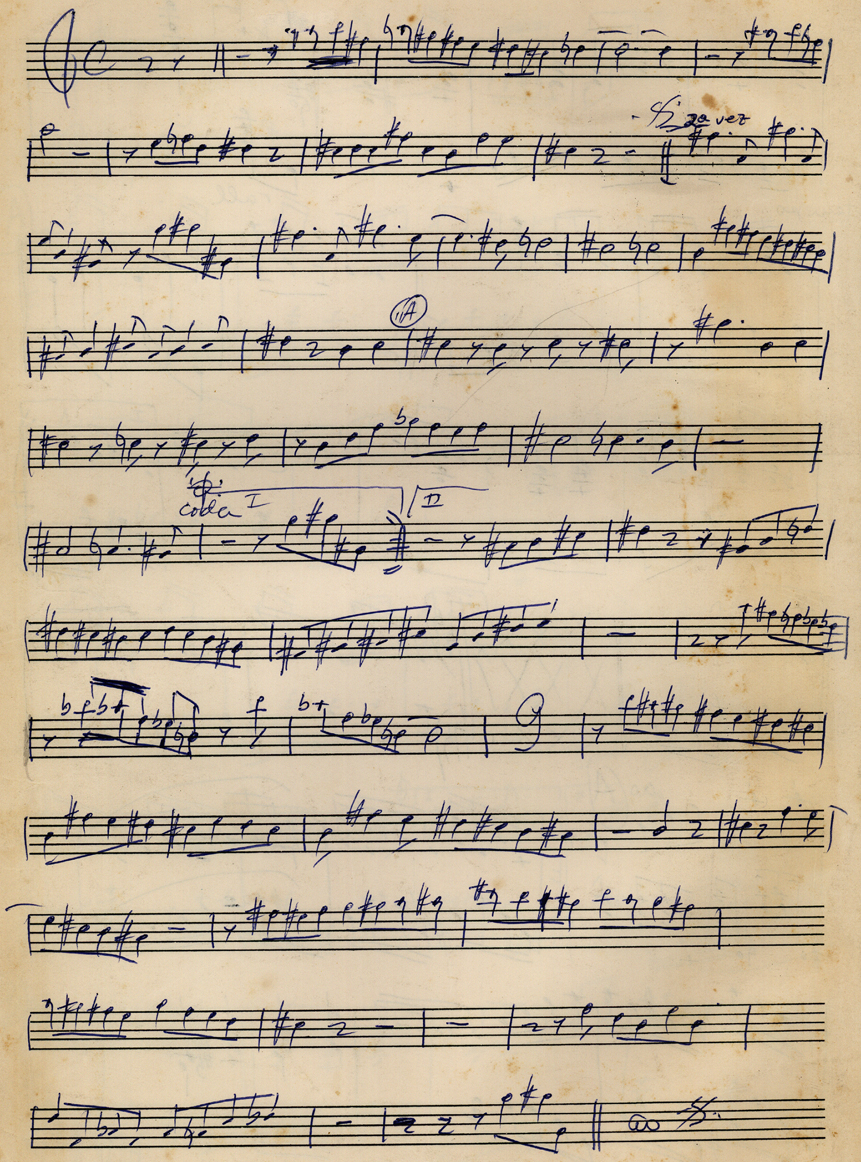 2a vez
"A"
coda I II